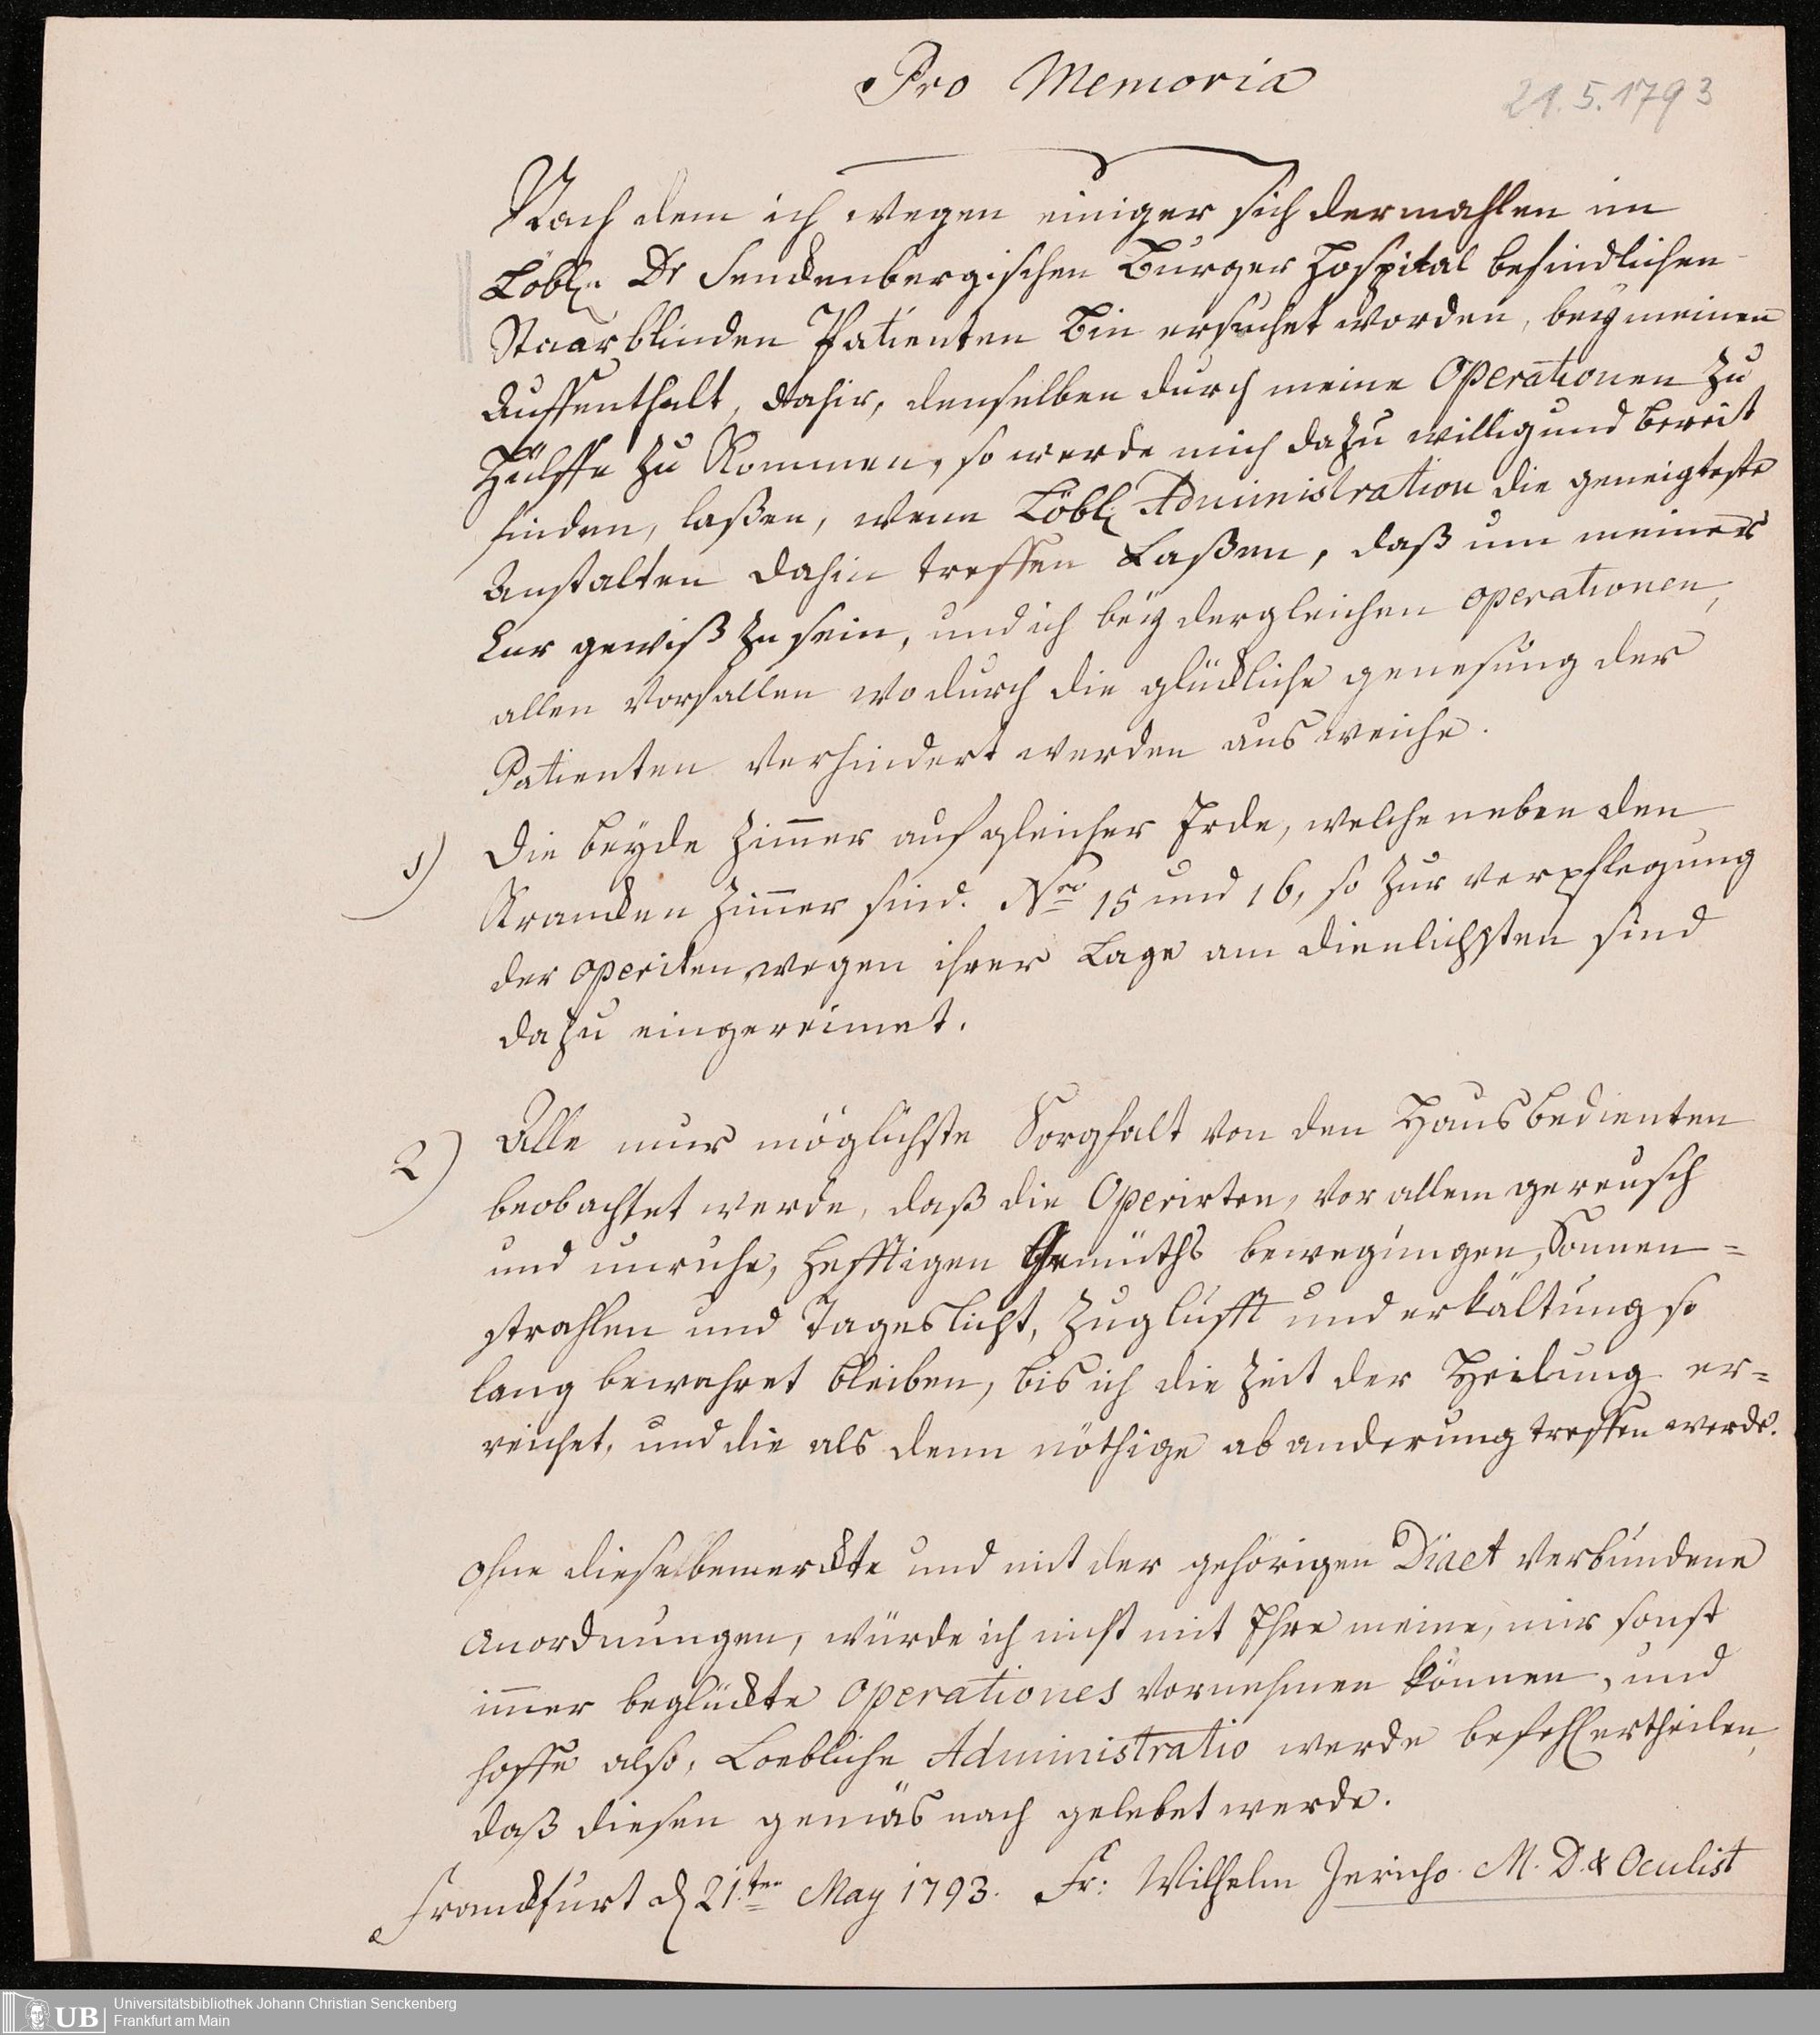 Pro Memoria
21.5.1793
Nach dem ich wegen einiger sich dermahlen im
Löbl. Dr Senckenbergischen Burger Hospital befindlichen
Staarblinden Patienten bin ersuchet worden, bey meinen
Auffenthalt, dahir, denselben durch meine Operationen zu
Hülffe zu Kommen, so werde mich dazu willig und bereit
finden, laßen, wenn Löbl. Administration die geneigteste
Anstalten dahin treffen Laßen, daß um meiner
Cur gewiß zu sein, und ich bey dergleichen operationen,
allen Vorfallen wodurch die glückliche genesung der
Patienten Verhindert werden ausweiche.
1) Die beyde Zimmer auf gleicher Erde, welche neben den
Krancken Zimmer sind. Nro 15 und 16, so zur verpflegung
der operiten wegen ihrer Lage am dienlichsten sind
dazu eingereimet.
2) Alle nur möglichste Sorgfalt von den Hausbedienten
beobachtet werde, daß die Operirten, vor allem gereusch
und unruhe, hefftigen Gemüths bewegungen, Sonnen=
strahlen und Tageslicht, Zuglufft und erkältung so
lang bewahret bleiben, bis ich die Zeit der Heilung er=
reichet, und die als denn nöthige ab anderung treffen werde.
Ohne diese bemerckte und mit der gehörigen Diaet verbundene
Anordnungen, würde ich nicht mit Ehre meine, mir sonst
immer beglückte Operationes vornehmen können, und
hoffe also, Loebliche Administratio werde befehl ertheilen,
daß diesen gemäs nach gelebet werde.
Franckfurt d 21ten May 1793. Fr: Wilhelm Jericho M. D. & Oculist
UB
Universitätsbibliothek Johann Christian Senckenberg
Frankfurt am Main